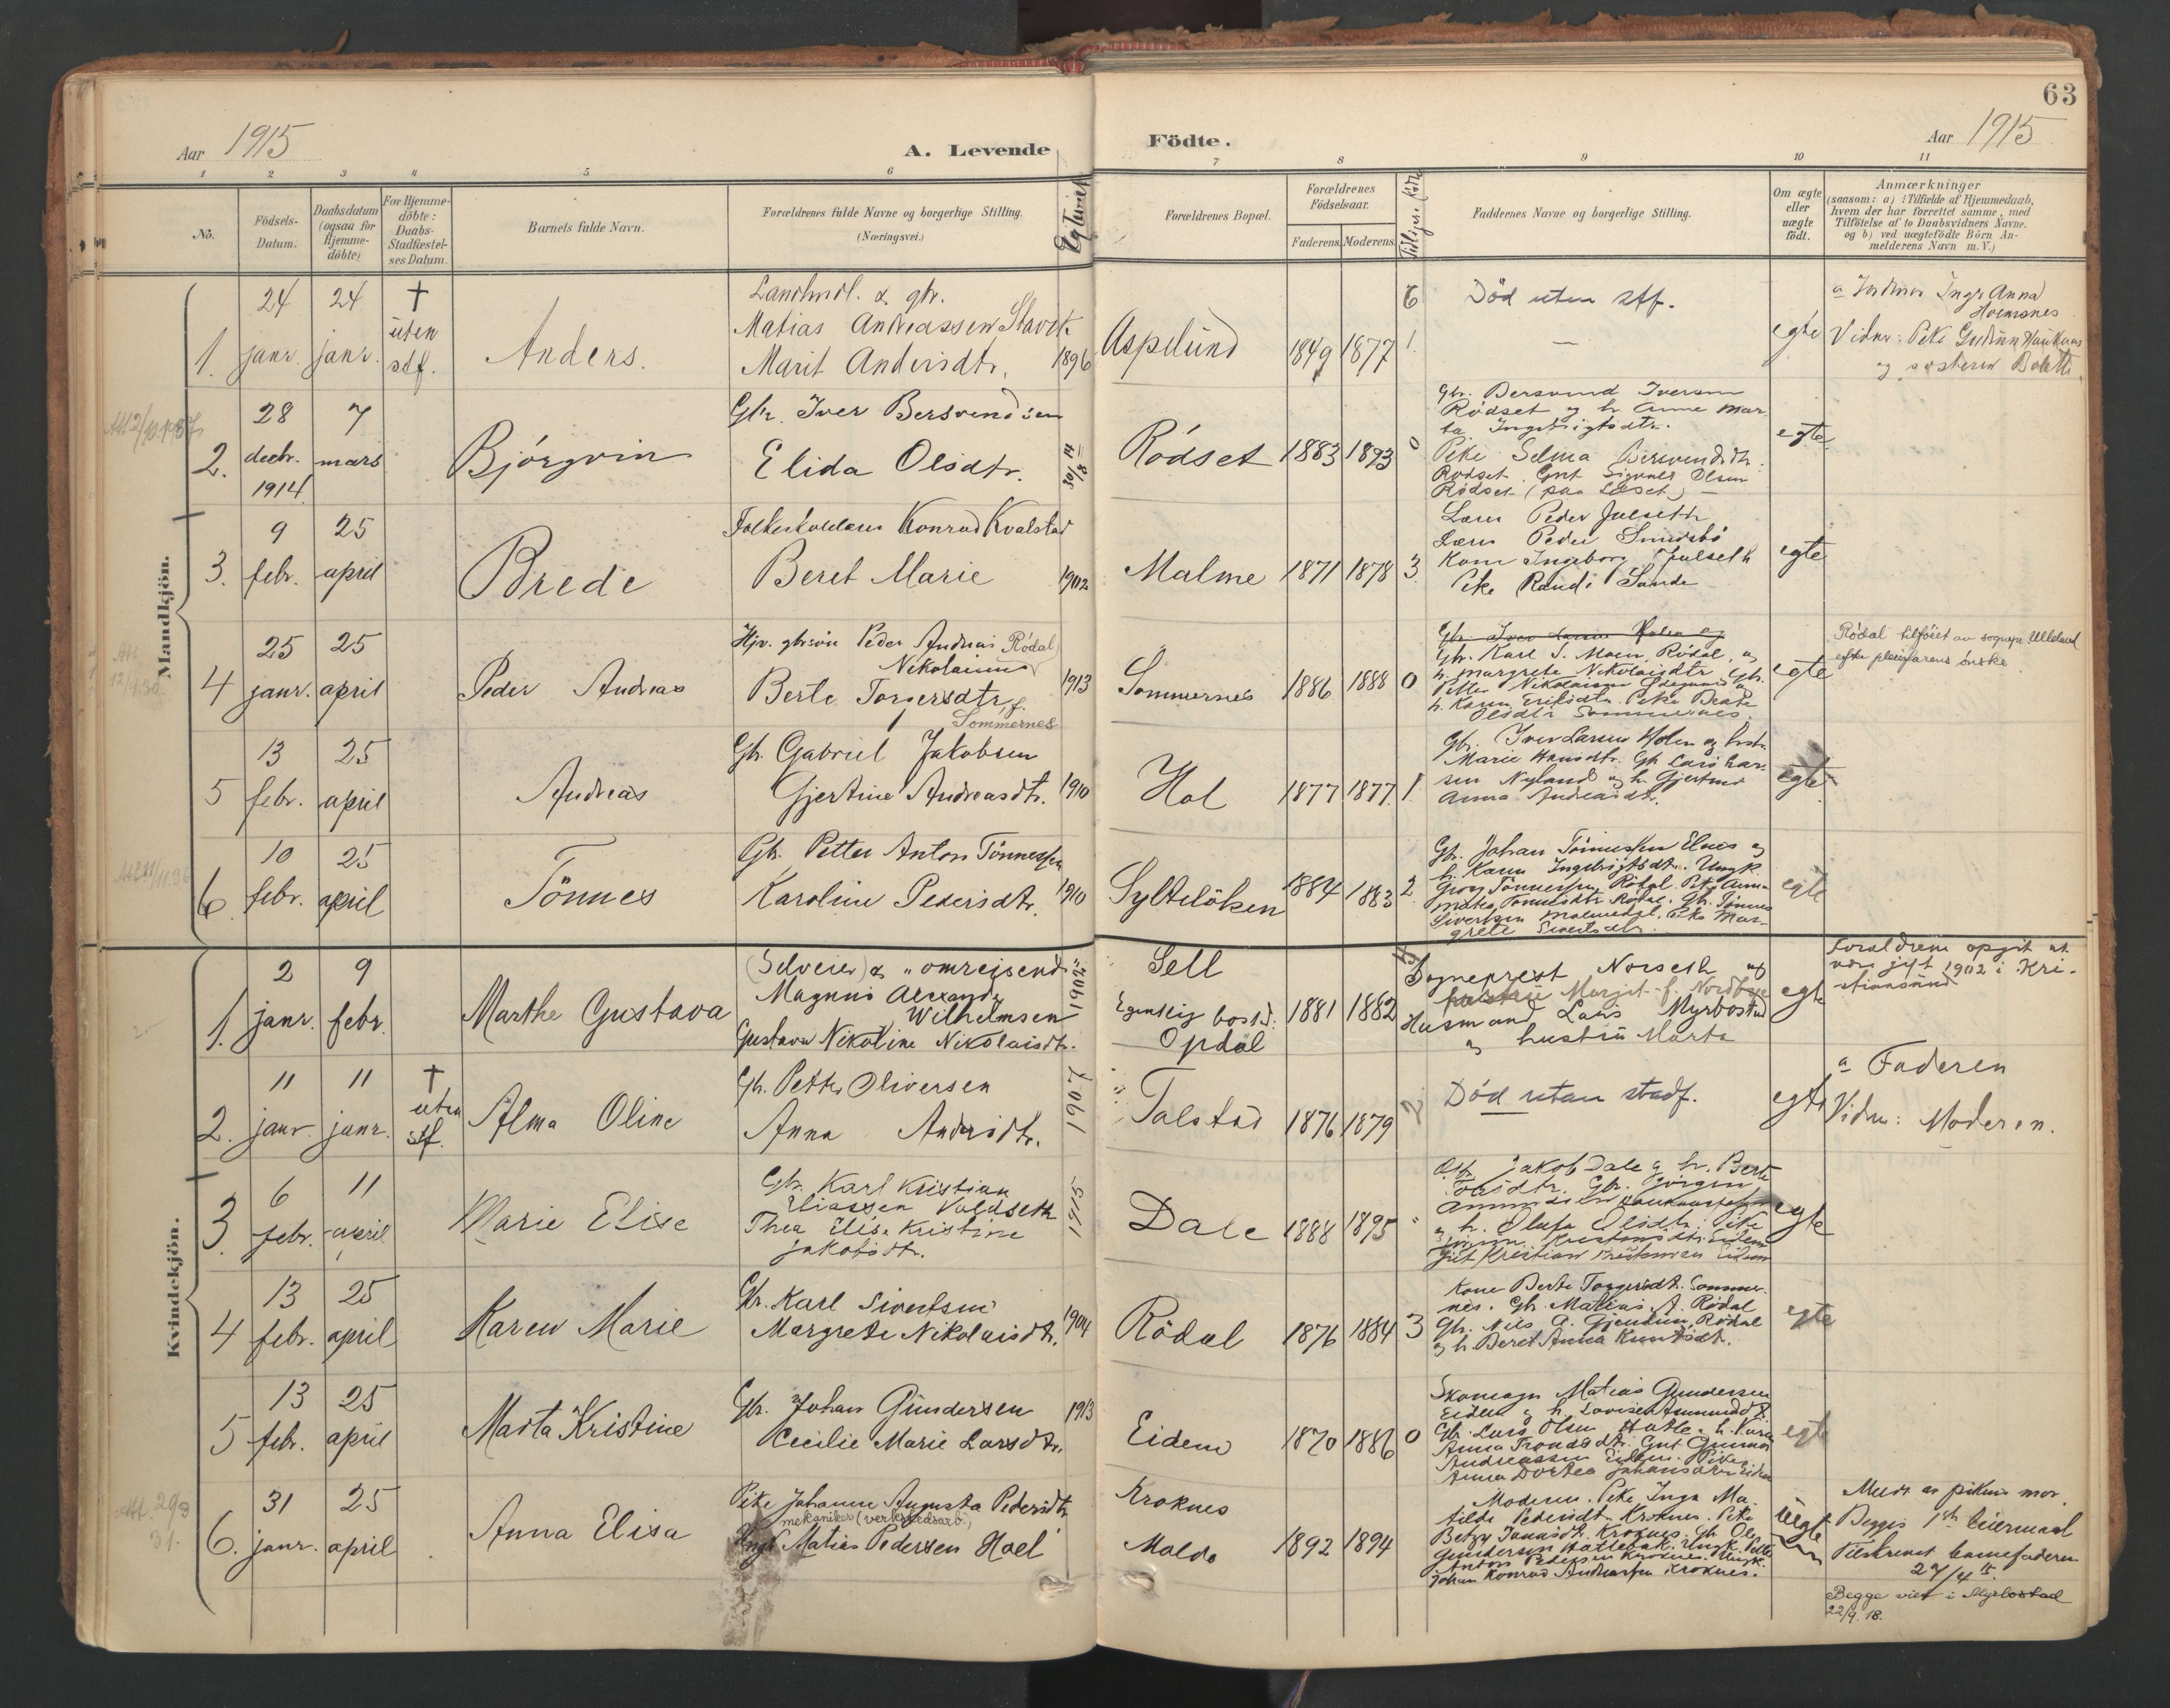 63
Aar 1915
A. Levende
Födte.
Aar 1915
1 2 3 4 5 6 7 8 9 10 11
Nö.
Födsels-
Datum.
Daabsdatum
(ogsaa for
Hjemme-
döbte)
For Hjemme-
döbte:
Daabs-
Stadfæstel-
ses Datum.
Barnets fulde Navn.
Forældrenes fulde Navne og borgerlige Stilling.
(Næringsvei.)
Egteviet
Forældrenes Bopæl.
Forældrenes
Födselsaar.
Faderens. Moderens.
Faddernes Navne og borgerlige Stilling.
Om ægte
eller
uægte
födt.
Anmærkninger
(saasom: a) i Tilfælde af Hjemmedaab,
hvem der har forrettet samme, med
Tilföielse af to Daabsvidners Navne.
og b) ved uægtefödte Börn An-
melderens Navn m. V.)
Mandkjön.
1. 24 janr. 24 janr.
† uten stf.
Anders.
Landhndl. & gbr.
Matias Andreassen Stavik
Marit Andersdtr. 1896
Aspelund 1849 1877
Död uten stf.
egte
a Jordmor Inga Anna
Holmsnes
og søsteren Bolette
2. 28 decbr. 1914 7 mars
Bjórgvin
Gbr. Iver Bersvendsen
Elida Olsdtr. 30/8 14
Rödset 1883 1893 0
Gbr. Bersvend Iversen
Rödset og h. Anne Mar-
ta Ingebrigtsdtr.
Pike Selma Bersvendsdtr.
Rödset. Gut Sigvald Olsen
Rödset
egte
3. 9 febr. 25 april
Brede
Konrad Kvalstad
Beret Marie 1902
Malme 1871 1878 3
Lærer Peder Julseth
Lærer Peder
Kone Ingeborg Julseth
Pike Randi Sande
egte
4 25 janr. 25 april
Peder Andreas
Hjv. gbrsön Peder Andreas Ródal
Nikolaisen
Berte Torgersdtr, f.
Sommernes
1913
Sommernes 1886 1888 0
Gbr. Iver Larsen Holen og
Gbr. Karl S. Moen, Rödal, og
h. Margrete Nikolaisdtr. Gbr.
Petter Nikolaisen
h. Karen Eriksdtr. Pike Beate
Olsdtr Sommernes.
egte
Ródal tilföiet av sognepr. Ulleland
efter pleiefarens önske.
5 13 febr. 25 april
Andreas
Gbr. Gabriel Jakobsen
Gjertine Andreasdtr. 1910
Hol 1877 1877. 1.
Gbr. Iver Larsen Holen og hustr.
Marie Hansdtr. Gbr Lars Lar-
sen Nyland og h. Gjertrud
Anna Andreasdtr.
egte
6 10 febr. 25 april
Tönnes
Gbr. Petter Anton Tönnessen
Karoline Pedersdtr. 1910
Syltelöken 1884 1883 2
Gbr. Johan Tönnessen Elnes og
h. Karen Ingebrigtsdtr. Ungk.
Georg Tönnessen Rödal. Pike Anne
Gbr. Tönnes
Sivertsen Malmedal. Pike Mar-
grete Sivertsdtr.
egte
Kvindekjön.
1. 2 janr. 9 febr.
Marthe Gustava
(Selveier) & "omreisende"
Magnus Alexander
Wilhelmsen
Gustava Nikoline Nikolaisdtr.
1902
Sell
Egentlig bosted:
Opdal
1881 1882
Sogneprest Norseth og
hustru Margit f. Nordbye
Husmand Lars Myrbostad
og hustru Marta
egte
Forældrene opgit at
være gift 1902 i Kri-
stiansund
2. 11 janr. 11 janr.
† uten stf.
Alma Oline
Gbr. Petter Oliversen
Anna Andersdtr. 1907
Talstad 1876 1879 2
Död uten stadf.
egte
a Faderen
Vidne: Moderen.
3. 6 febr. 11 april
Marie Elise
Gbr. Karl Kristian
Eliassen Valdseth
Thea Elise Kristine
Jakobsdtr.
1915
Dale 1888 1895
Gbr. Jakob Dale og h. Berte
Gbr. Jörgen
og h. Olufa Olsdtr. Pike
Gut Kristian Kristensen Eidem
egte
4 13 febr. 25 april
Karen Marie
Gbr. Karl Sivertsen
Margrete Nikolaisdtr. 1904
Rödal 1876 1884 3
Kone Berte Torgersdtr. Sommer-
nes. Gbr. Matias A. Rödal
Gbr. Nils A. Gjendem, Rödal
og h. Beret Anna Knutsdtr.
egte
5 13 febr. 25 april
Marta Kristine
Gbr. Johan Gundersen
Cecilie Marie Larsdtr. 1913
Eidem 1870 1886 0
Skomager Matias Gundersen
Eidem og h. Lovise Amundsdtr
Gbr. Lars Olsen Hatle. h. Karen
Anna Trondsdtr. Gut Gunnar
Andreassen Eidem. Pike
Anna Dortea Johansdtr. Eidem
egte
6. 31 janr. 25 april
Anna Elisa
Pike Johanne Augusta Pedersdtr
mekaniker (verkstedsarb.)
Ungk. Matias Pedersen Hoel
Kroknes
Molde
1892 1894
Moderen. Pike Inga Ma-
tilde Pedersdtr Kroknes. Pike
Betzy Jonasdtr. Kroknes. Gbr Ole
Gundersen Hatlebak. Ungk. Petter
Anton Pedersen Kroknes. Ungk.
Johan Konrad Andreassen Kroknes.
uegte
Meldt av pikens mor.
Begges 1ste leiermaal
Tilskrevet barnefaderen
27/4 15.
Begge viet i Myrbostad
22/9. 18.